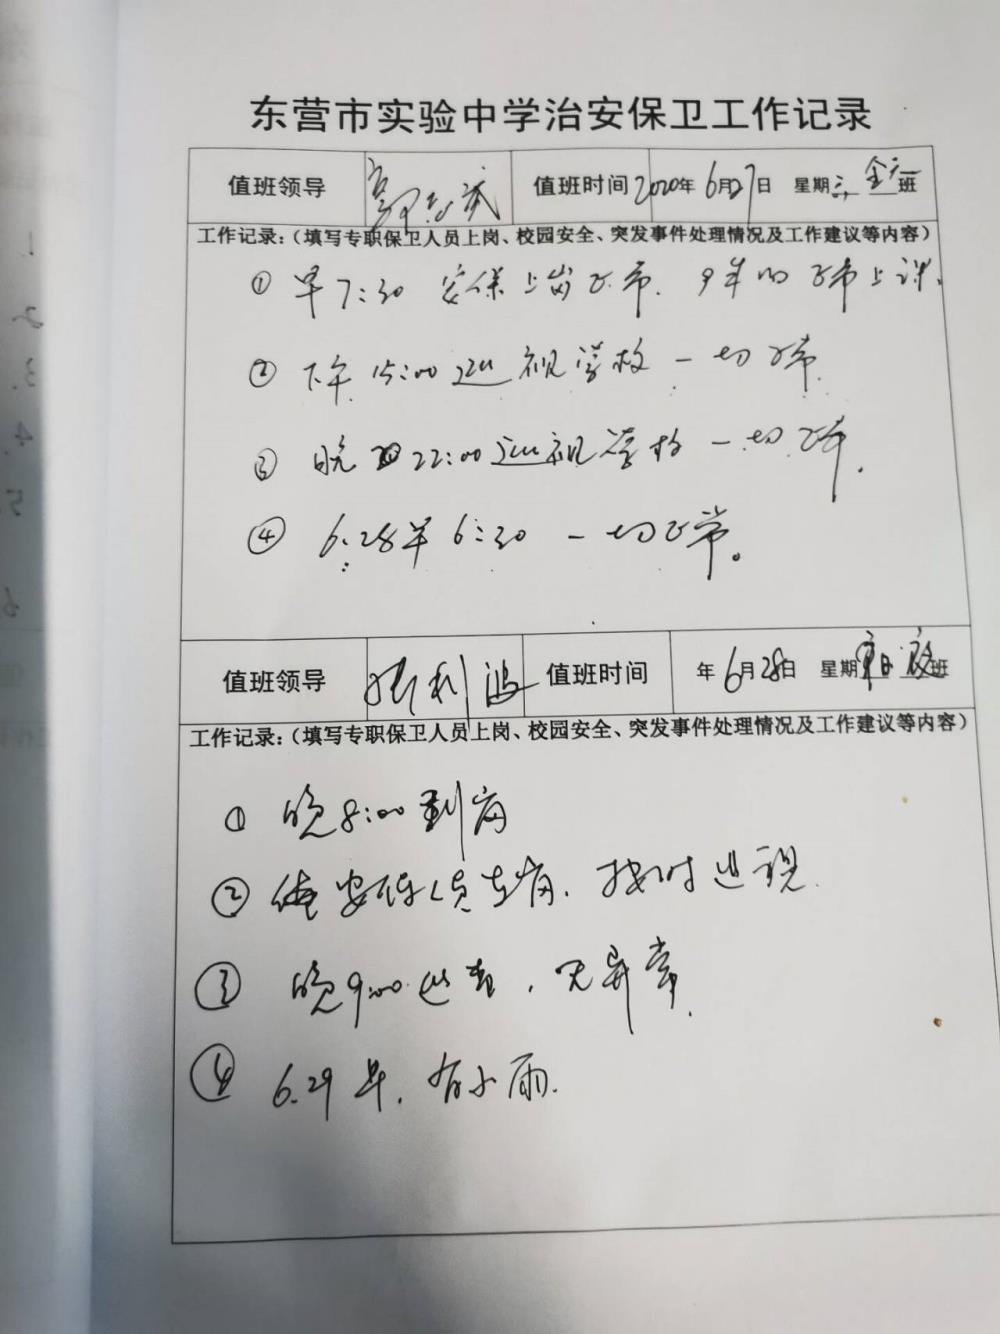 东营市实验中学治安保卫工作记录
值班领导 值班时间 2020年 6月27日 星期 班
工作记录：（填写专职保卫人员上岗、校园安全、突发事件处理情况及工作建议等内容）
① 早7:30 安保上岗正常. 9年的正常上课.
② 下午15:00巡视学校一切正常.
③ 晚22:00巡视学校一切正常.
④ 6.28早6:30 一切正常。
值班领导 值班时间 年6月28日 星期 班
工作记录：（填写专职保卫人员上岗、校园安全、突发事件处理情况及工作建议等内容）
① 晚8:00到岗
② 安保人员在岗. 按时巡视.
③ 晚9:00巡查，无异常.
④ 6.29早. 有小雨.
1
2
3.
4.
5
6